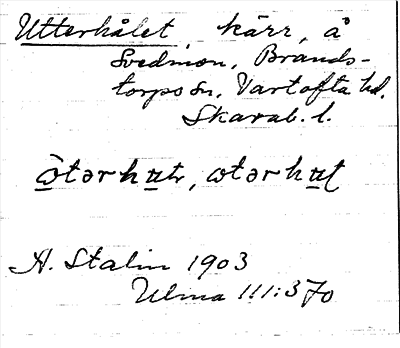 Utterhålet, kärr, å
Svedmon, Brands-
torps sn. Vartofta hd.
Skarab. l.
A. Stalin 1903
Ulma 111:370